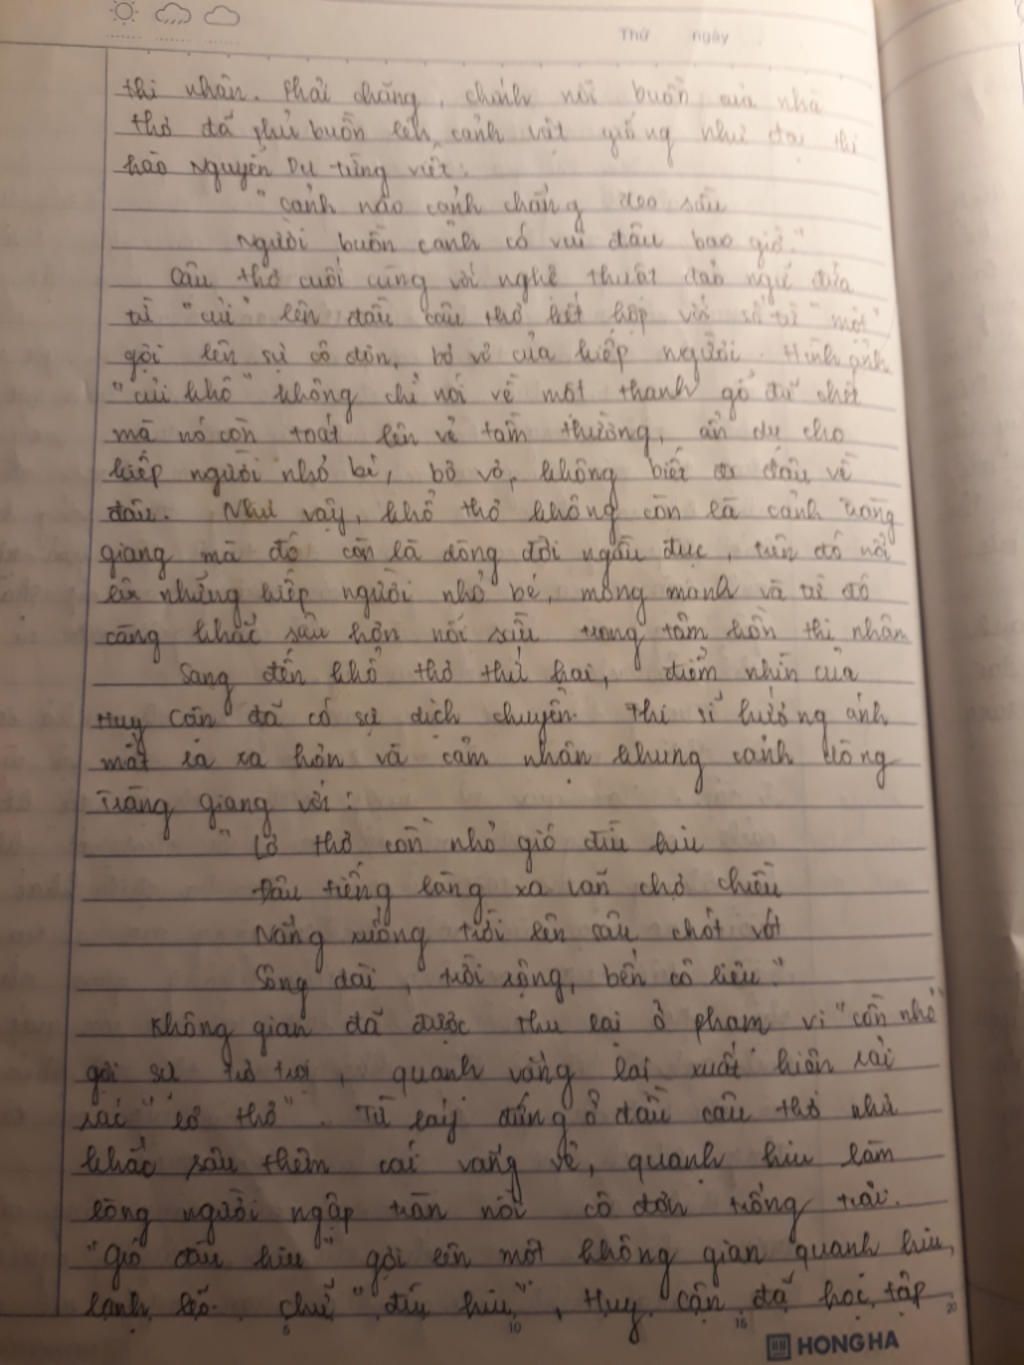 Thứ ngày
thi nhân. Phải chăng, chính nỗi buồn của nhà
thơ đã phủ buồn lên cảnh vật giống như đại thi
hào Nguyễn Du từng viết:
"Cảnh nào cảnh chẳng đeo sầu
Người buồn cảnh có vui đâu bao giờ."
Câu thơ cuối cùng với nghệ thuật đảo ngữ đưa
từ "củi" lên đầu câu thơ kết hợp với số từ "một"
gợi lên sự cô đơn, bơ vơ của kiếp người. Hình ảnh
"củi khô" không chỉ nói về một thanh gỗ đã chết
mà nó còn toát lên vẻ tầm thường, ẩn dụ cho
kiếp người nhỏ bé, bơ vơ, không biết đi đâu về
đâu. Như vậy, khổ thơ không còn là cảnh tràng
giang mà đó còn là dòng đời ngầu đục, trên đó nổi
lên những kiếp người nhỏ bé, mỏng manh và từ đó
càng khắc sâu hơn nỗi sầu trong tâm hồn thi nhân
Sang đến khổ thơ thứ hai, điểm nhìn của
Huy Cận đã có sự dịch chuyển. Thi sĩ hướng ánh
mắt ra xa hơn và cảm nhận khung cảnh trong
Tràng giang với:
"Lơ thơ cồn nhỏ gió đìu hiu
Đâu tiếng làng xa vãn chợ chiều
Nắng xuống trời lên sâu chót vót
Sông dài, trời rộng, bến cô liêu."
Không gian đã được thu lại ở phạm vi "cồn nhỏ"
gợi sự trơ trọi, quạnh vắng lại xuất hiện rải
rác "lơ thơ". Từ láy đứng ở đầu câu thơ như
khắc sâu thêm cái vắng vẻ, quạnh hiu làm
lòng người ngập tràn nỗi cô đơn trống trải.
"Gió đìu hiu" gợi lên một không gian quạnh hiu,
lạnh lẽo. Chữ "đìu hiu", Huy Cận đã học tập
5 10 15 20
HONG HA